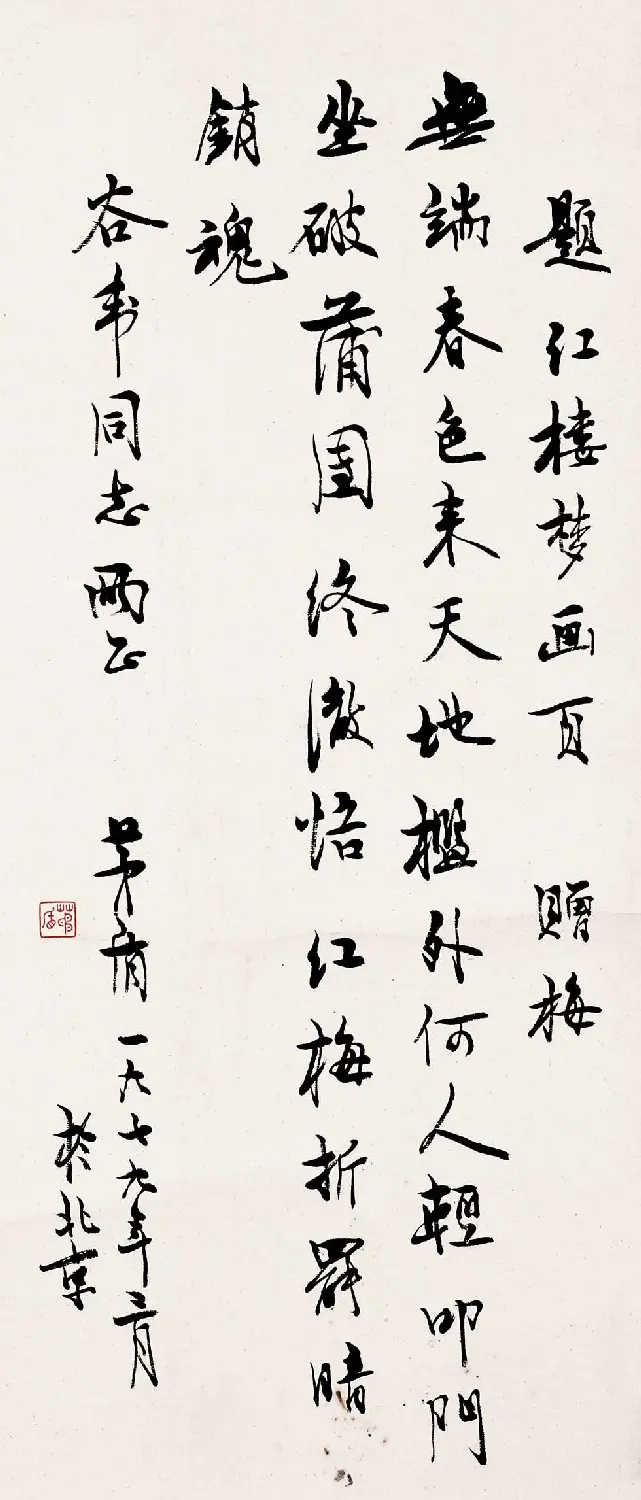 题红楼梦画页 赠梅
無端春色来天地檻外何人輕叩門
坐破蒲团终澈悟红梅折罢暗
銷魂
谷韦同志两正
茅盾一九七九年二月
於北京
茅盾